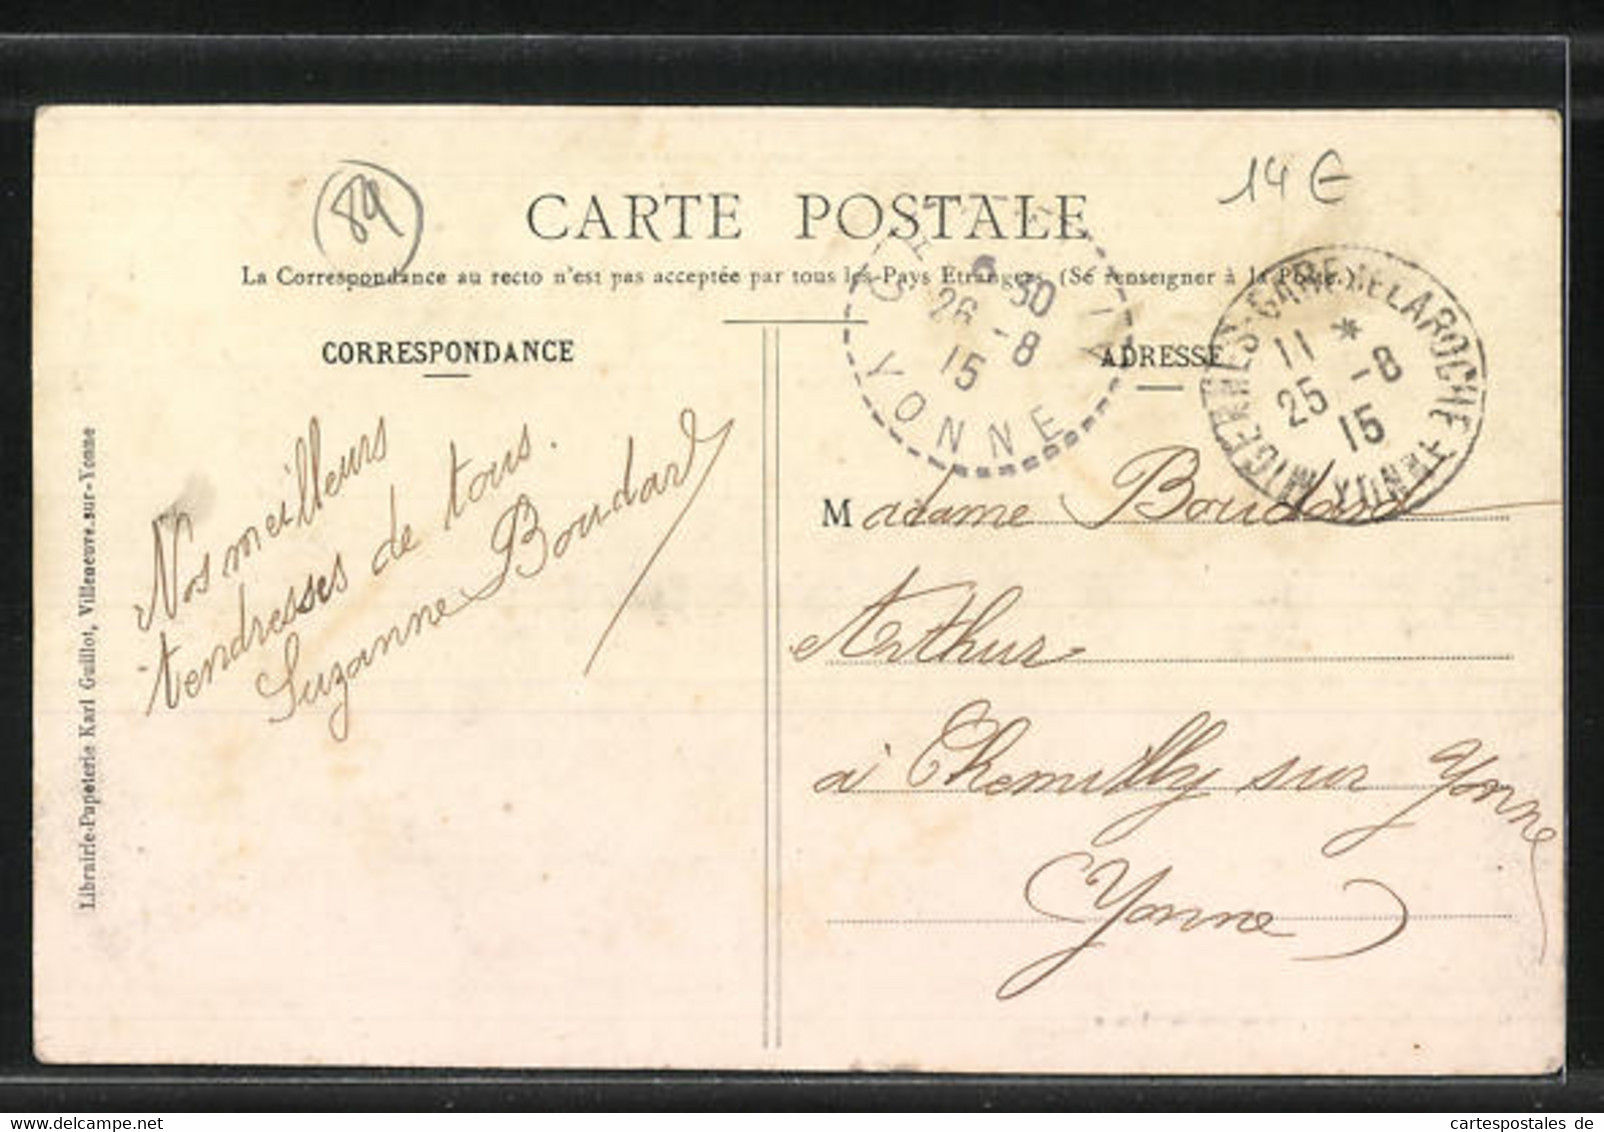 89
14 €
CARTE POSTALE
La Correspondance au recto n'est pas acceptée par tous les Pays Etrangers. (Se renseigner à la Poste.)
6 30
26 -8
15
YONNE
MIGENNES-GARE DE LAROCHE
11 *
25 -8
15
YONNE
CORRESPONDANCE
ADRESSE
Nos meilleurs
tendresses de tous.
Suzanne Boudard
Madame Boudard
Arthur
à Chemilly sur Yonne
(Yonne)
Librairie-Papeterie Karl Guillot, Villeneuve-sur-Yonne
cartespostales de